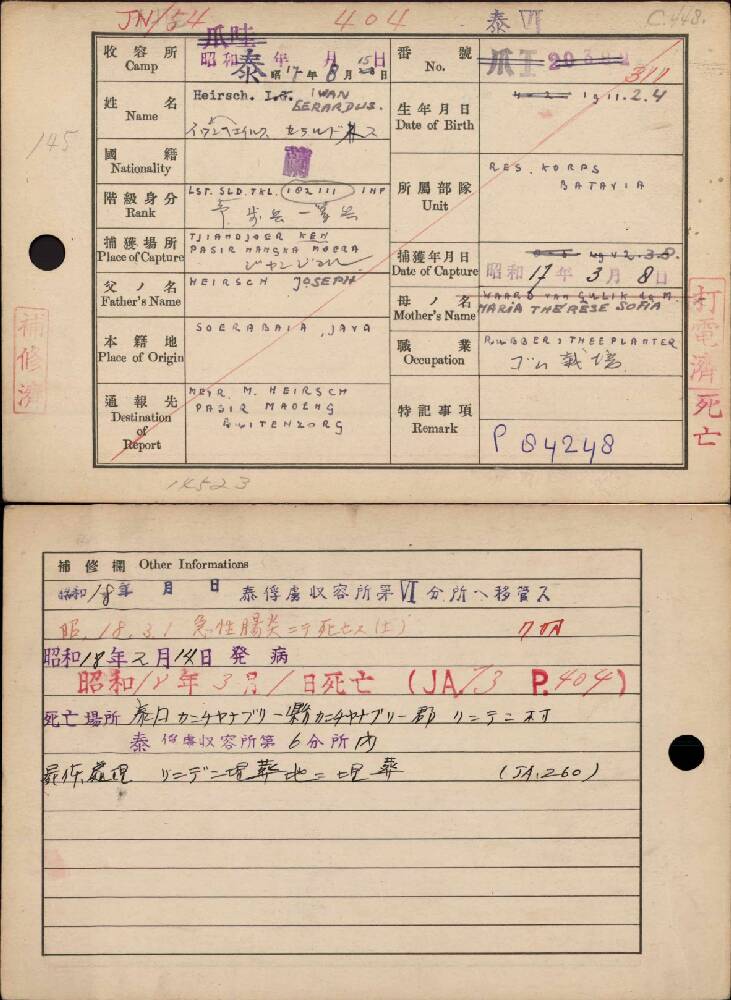 JN/54 404 泰 VI C.448.
收容所 Camp 爪哇 泰 昭和 年 月 日
昭17年8月15日
番號 No. 爪I 311
姓名 Name Heirsch. I.G. IWAN
GERARDUS.
生年月日 Date of Birth 1911.2.4
145
國籍 Nationality 蘭
階級身分 Rank LST. SLD. TKL. 182111 INF
所屬部隊 Unit RES. KORPS
BATAVIA
捕獲場所 Place of Capture TJIANDJOER KEM
PASIR NANGKA MOERA
捕獲年月日 Date of Capture 昭和17年3月8日
父ノ名 Father's Name HEIRSCH JOSEPH
母ノ名 Mother's Name WAARD VAN GULIK de M.
MARIA THERESE SOFIA
本籍地 Place of Origin SOERABAIA, JAVA
職業 Occupation RUBBER & THEEPLANTER
ゴム栽培
通報先 Destination of Report MEVR. M. HEIRSCH
PASIR MAOENG
BUITENZORG
特記事項 Remark P 84248
補修濟
打電濟 死亡
14523
補修欄 Other Informations
昭和18年 月 日 泰俘虜収容所第VI分所ヘ移管ス
昭.18.3.1 急性腸炎ニテ死亡ス
昭和18年2月14日発病
昭和18年3月1日死亡 (JA/73 P.404)
死亡場所 泰国カンチヤナブリー縣カンチヤナブリー郡リンテン村
泰俘虜収容所第6分所内
屍体處理 リンデン埋葬地ニ埋葬 (JA.260)